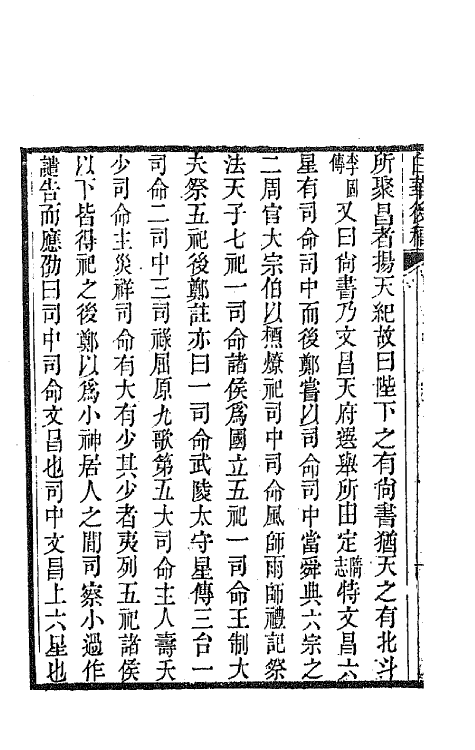 白華後稿
所聚昌者揚天紀故曰陛下之有尚書猶天之有北斗
李固傳又曰尚書乃文昌天府選舉所由定隋志特文昌六
星有司命司中而後鄭嘗以司命司中當舜典六宗之
二周官大宗伯以槱燎祀司中司命風師雨師禮記祭
法天子七祀一司命諸侯爲國立五祀一司命王制大
夫祭五祀後鄭註亦曰一司命武陵太守星傳三台一
司命二司中三司祿屈原九歌第五大司命主人壽夭
少司命主災祥司命有大有少其少者夷列五祀諸侯
以下皆得祀之後鄭以爲小神居人之間司察小過作
譴告而應劭曰司中司命文昌也司中文昌上六星也